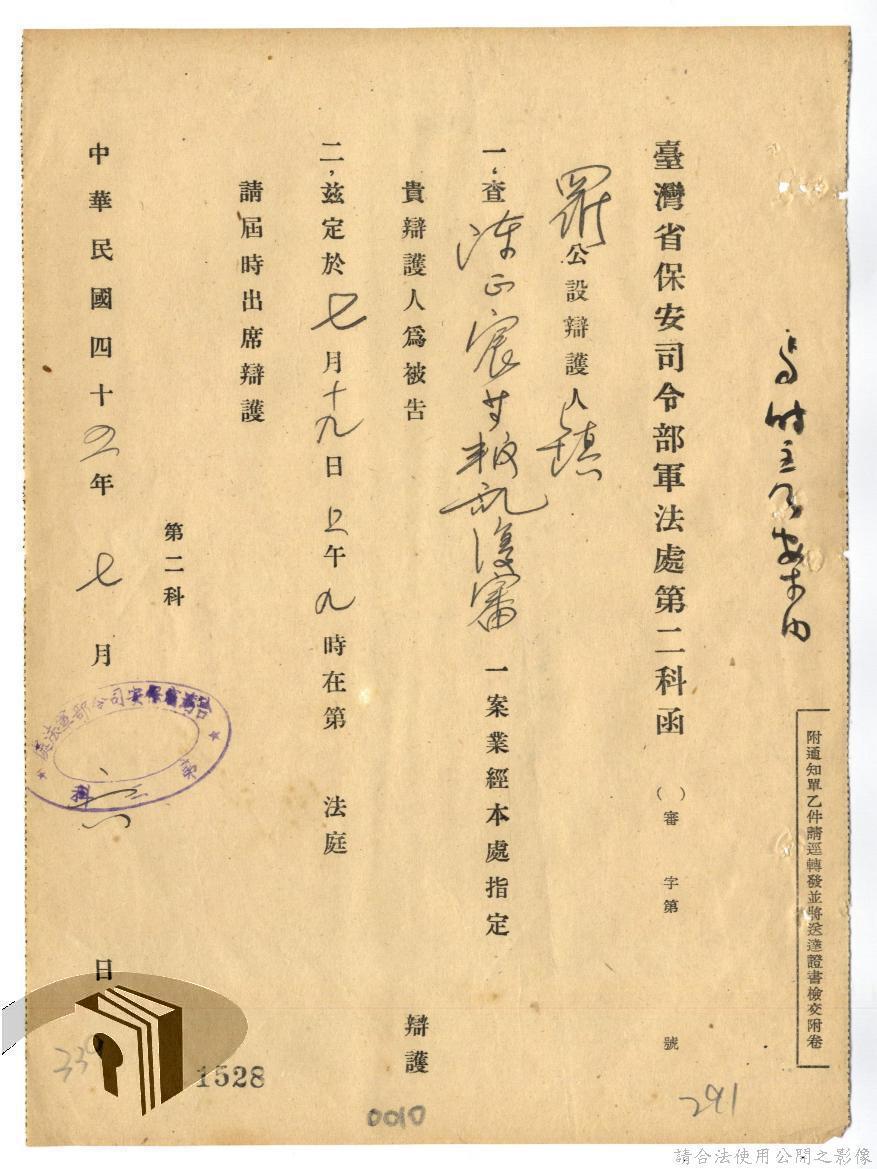 附通知單乙件請逕轉發並將送達證書檢交附卷
臺灣省保安司令部軍法處第二科函
( )審 字第 號
羅公設辯護人鎮
一,查陳正宸等叛亂復審一案業經本處指定
貴辯護人為被告 辯護
二,茲定於七月十九日上午九時在第 法庭
請屆時出席辯護
第二科
中華民國四十五年七月 日
台灣省保安司令部軍法處
1528
0010
291
請合法使用公開之影像